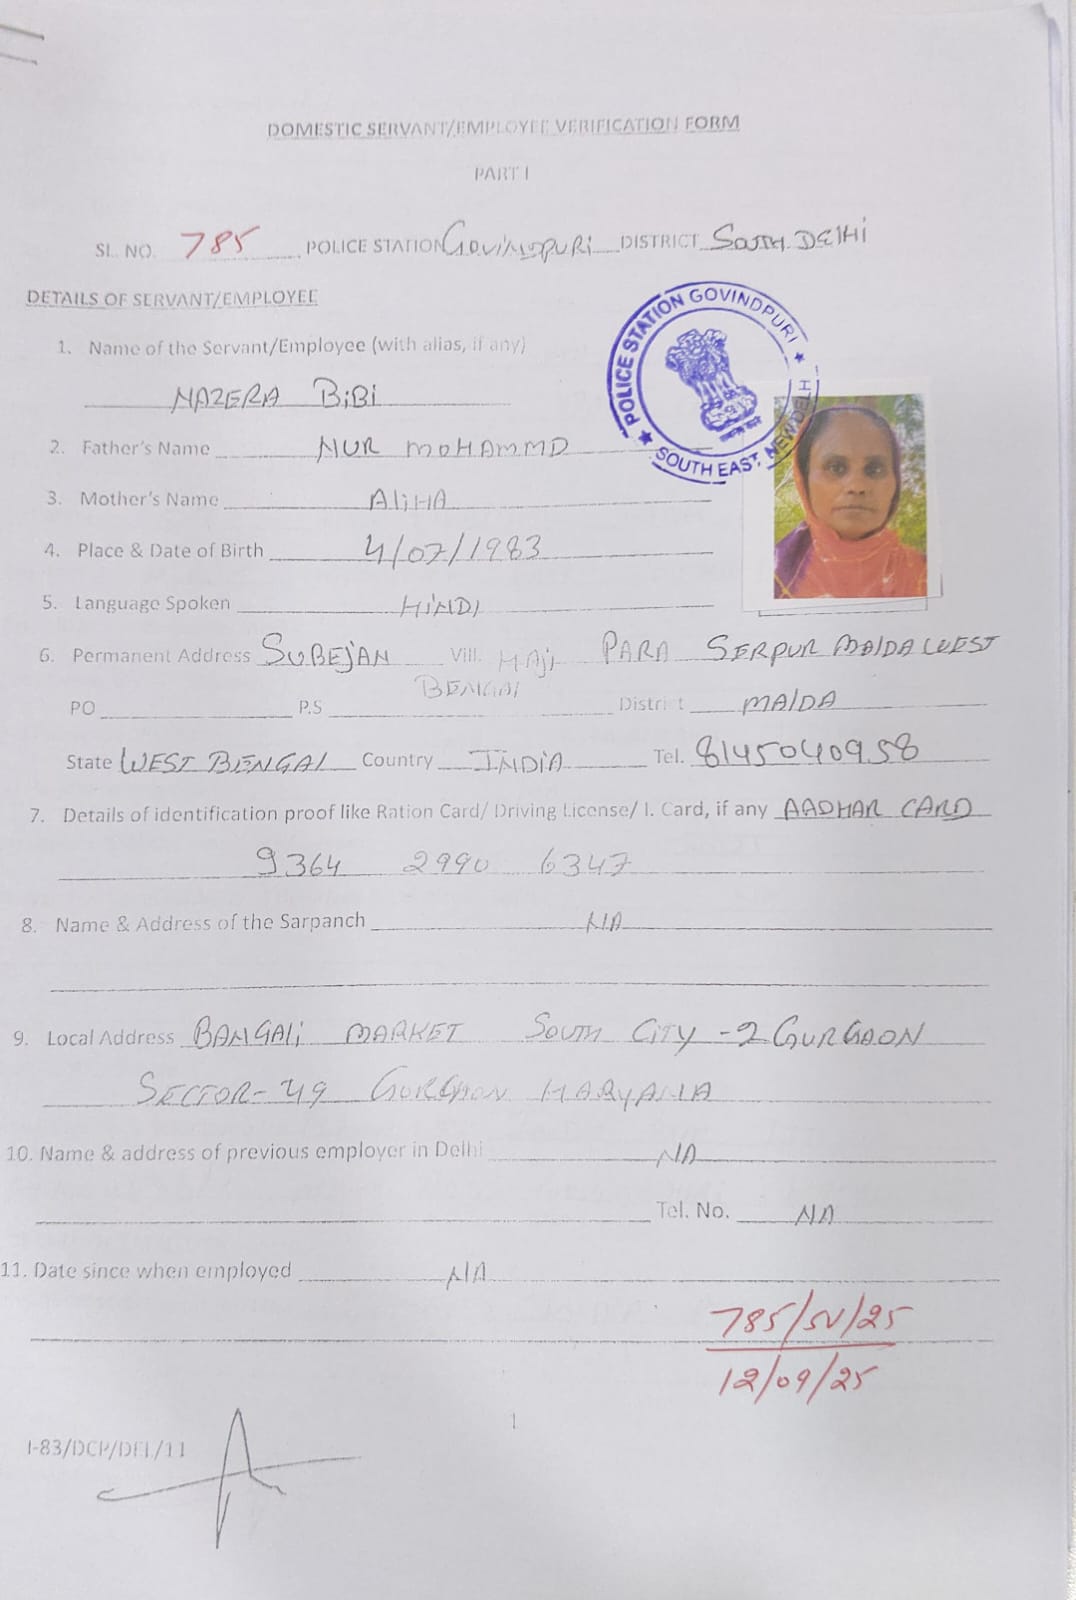 DOMESTIC SERVANT/EMPLOYEE VERIFICATION FORM
PART I
SL. NO. 785 POLICE STATION GOVINDPURI DISTRICT SOUTH DELHI
DETAILS OF SERVANT/EMPLOYEE
POLICE STATION GOVINDPURI
SOUTH EAST, NEW DELHI
1. Name of the Servant/Employee (with alias, if any)
NAZERA BiBi
2. Father's Name NUR MOHAMMD
3. Mother's Name AliHA
4. Place & Date of Birth 4/07/1983
5. Language Spoken HiNDI
6. Permanent Address SUBEJAN Vill. HAji PARA SERPUR MAlDA WEST
BENGAl
PO P.S District MAlDA
State WEST BENGAl Country INDiA Tel. 8145040958
7. Details of identification proof like Ration Card/ Driving License/ I. Card, if any AADHAR CARD
9364 2990 6347
8. Name & Address of the Sarpanch N/A
9. Local Address BANGAli MARKET SOUTH CITY -2 GURGAON
SECTOR-49 GURGAON HARYANA
10. Name & address of previous employer in Delhi NA
Tel. No. NA
11. Date since when employed N/A
785/SV/25
12/09/25
1
I-83/DCP/DEL/11